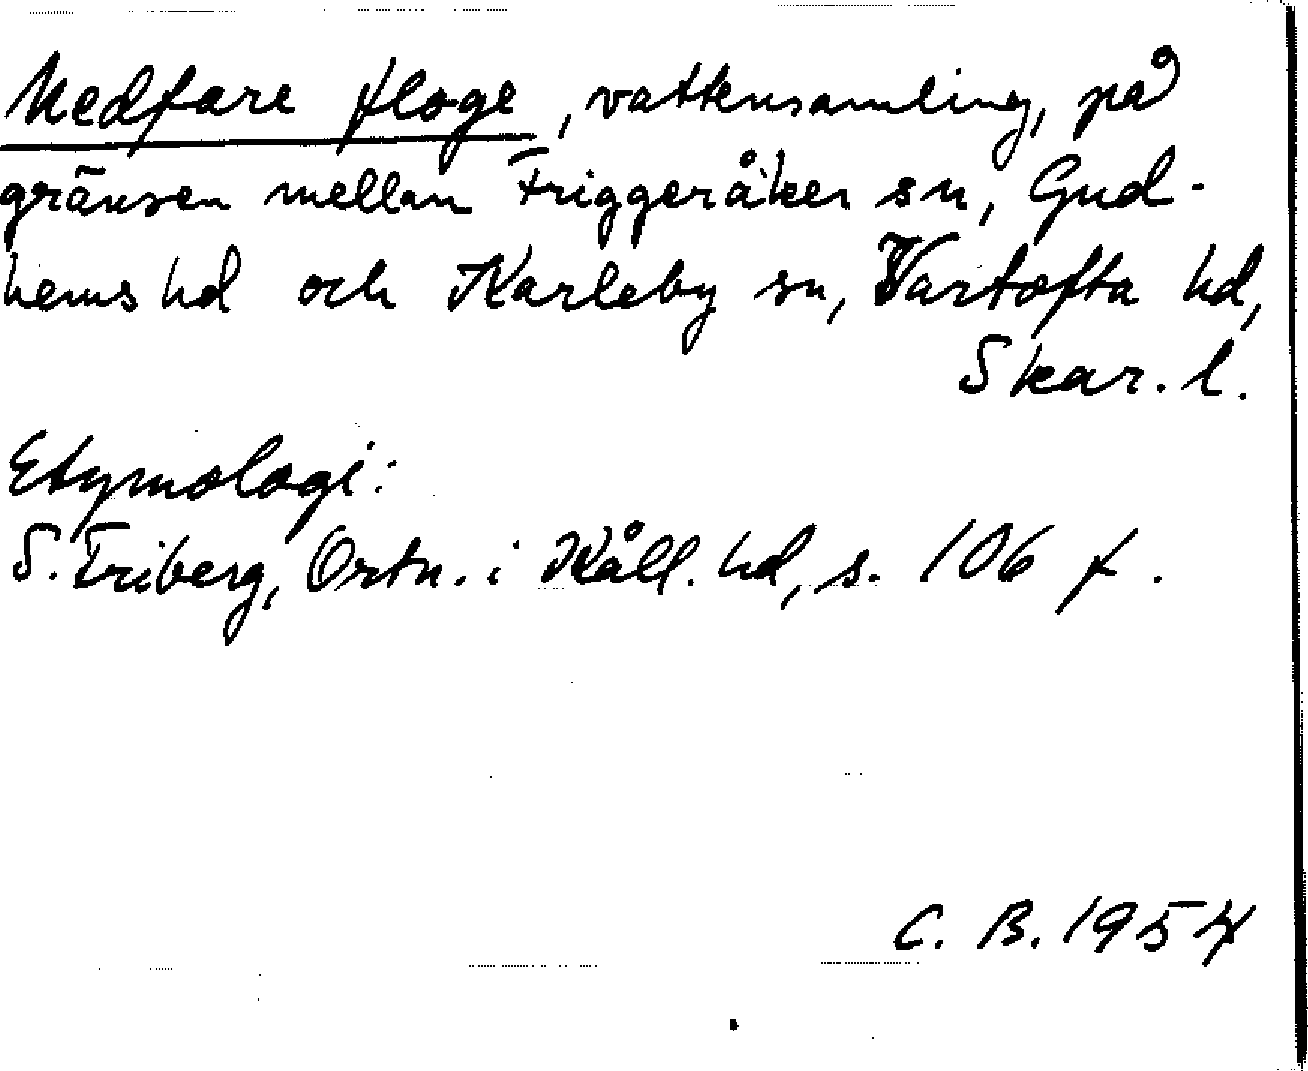 Nedfare floge, vattensamling, på
gränsen mellan Friggeråker sn, Gud-
hems hd och Karleby sn, Vartofta hd,
Skar. l.
Etymologi:
S. Friberg, Ortn. i Kåll. hd, s. 106 f.
C. B. 1954